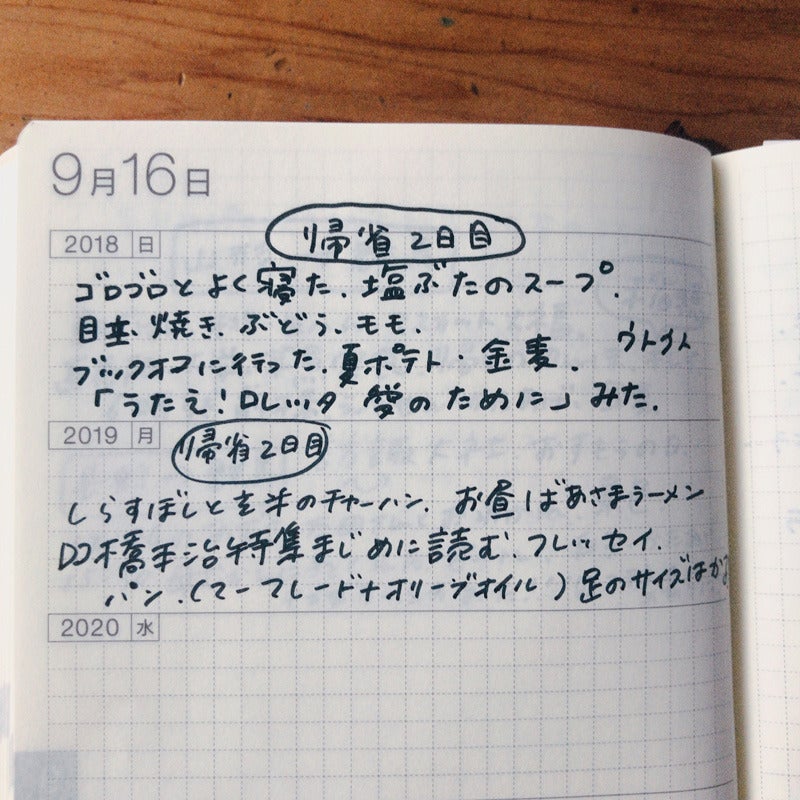 9月16日
2018 日 帰省2日目
ゴロゴロとよく寝た.塩ぶたのスープ.
目玉焼き.ぶどう.モモ.
ブックオフに行った.夏ポテト・金麦. ウトウト
「うたえ!ロレッタ 愛のために」みた.
2019 月 帰省2日目
しらすぼしと玄米のチャーハン. お昼ばあさまラーメン
橋本治特集まじめに読む.フレッセイ.
パン.(マーマレード+オリーブオイル) 足のサイズはかる
2020 水